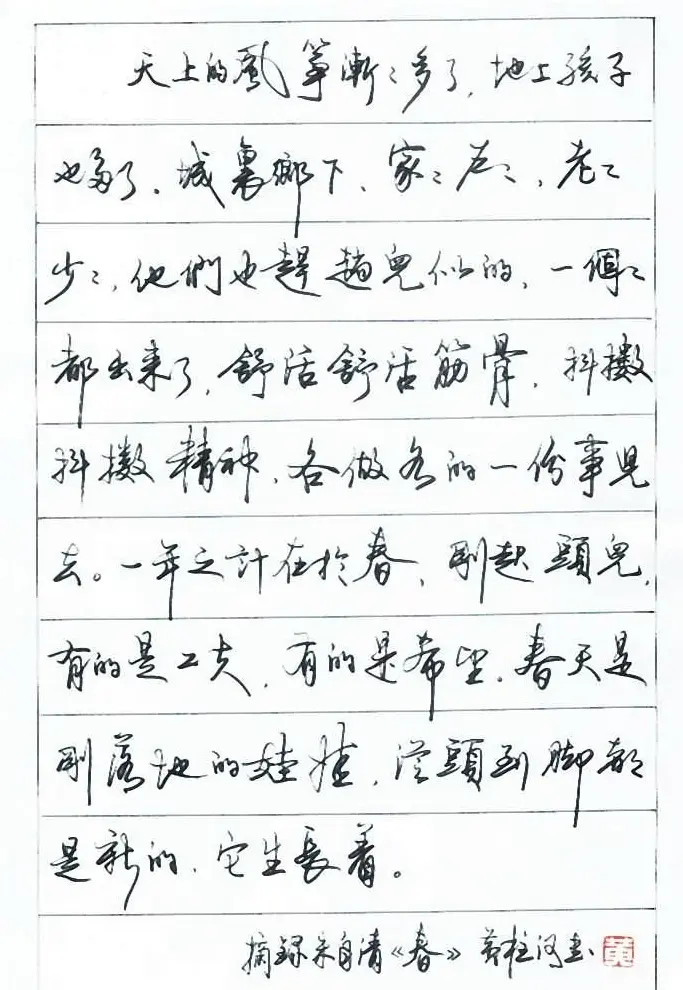 天上的風箏漸〻多了，地上孩子
也多了。城裏鄉下、家〻户〻，老〻
少〻，他們也趕趟兒似的，一個〻
都出来了，舒活舒活筋骨，抖擻
抖擻精神，各做各的一份事兒
去。一年之計在於春，剛起頭兒，
有的是工夫，有的是希望。春天是
剛落地的娃娃，從頭到脚都
是新的，它生長着。
摘録朱自清《春》 黄柱河書 黄